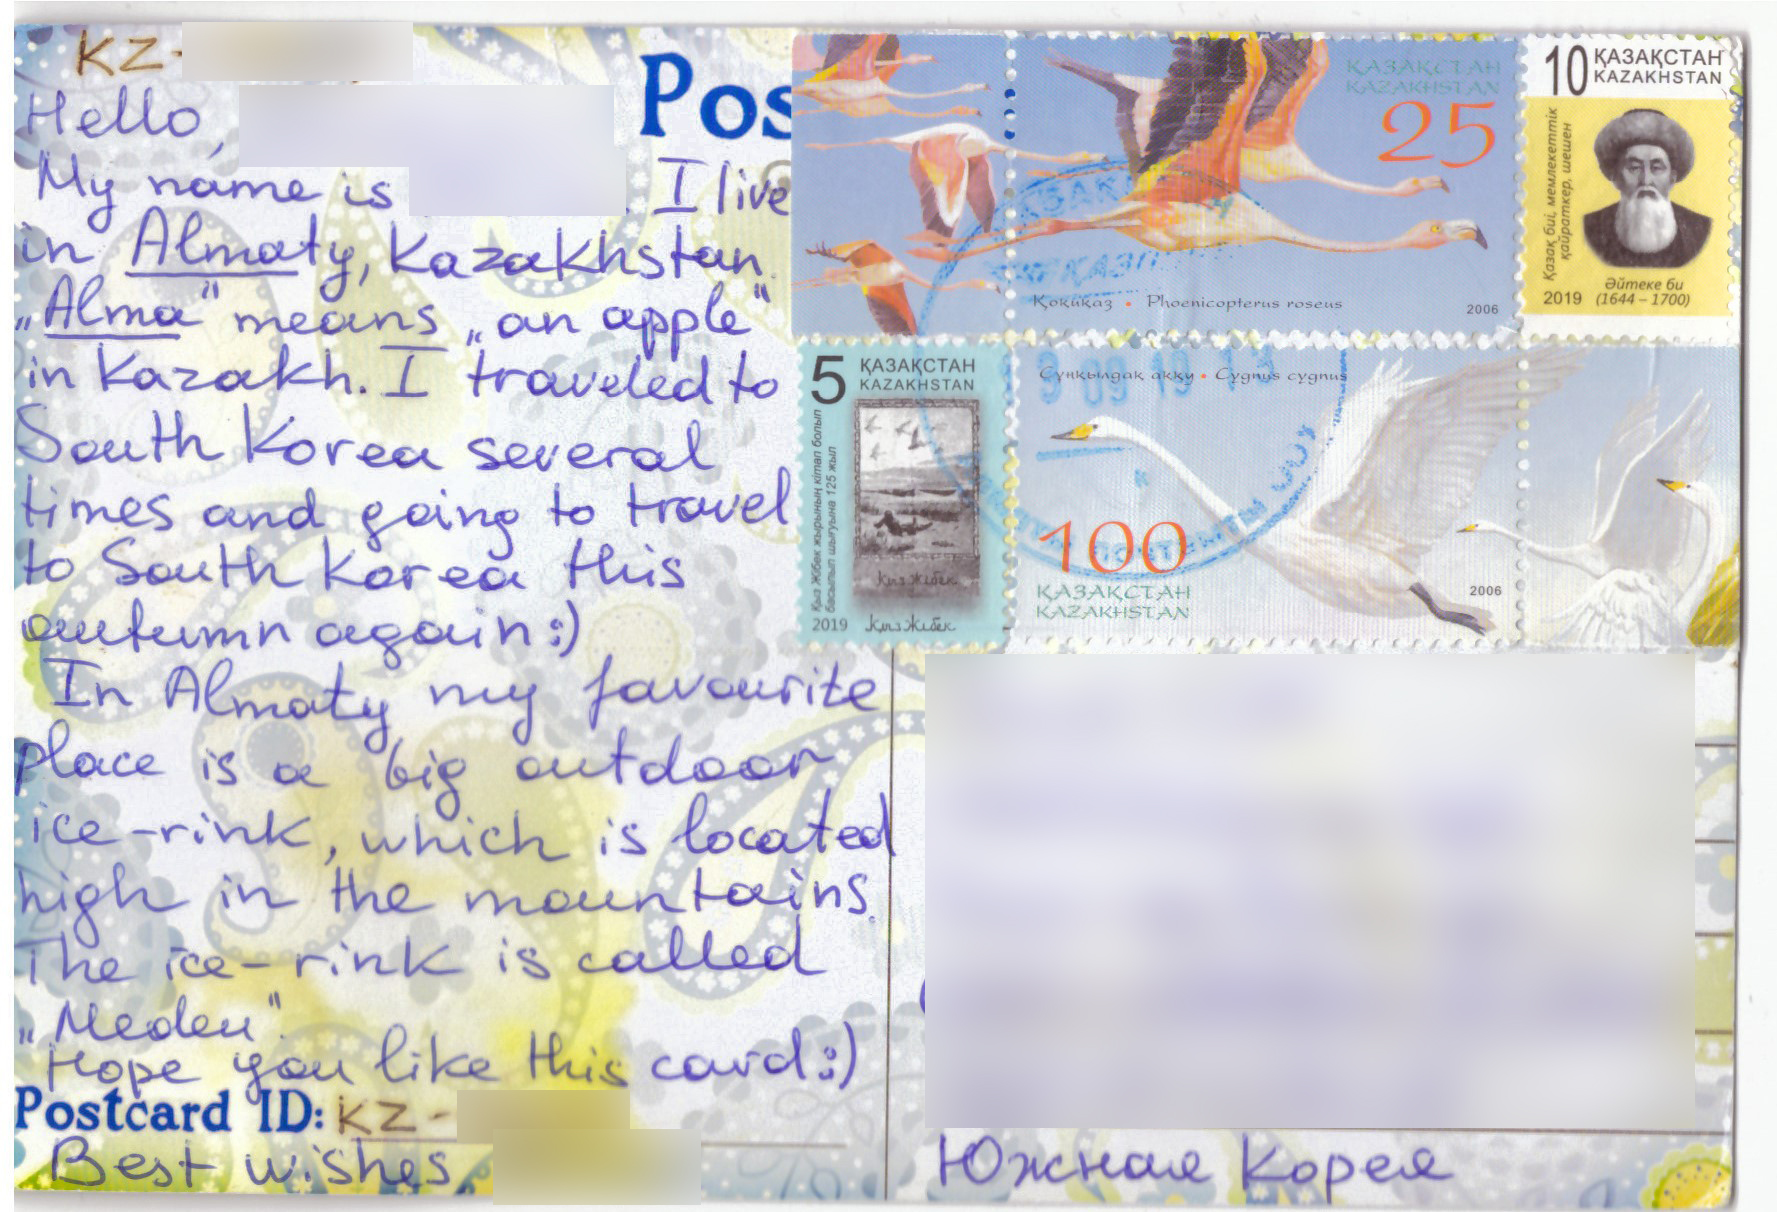 KZ-
Hello,
My name is
I live
in Almaty, Kazakhstan.
„Alma" means „an apple"
in Kazakh. I traveled to
South Korea several
times and going to travel
to South Korea this
autumn again :)
In Almaty my favourite
place is a big outdoor
ice-rink, which is located
high in the mountains.
The ice-rink is called
„Medeu".
Hope you like this card :)
Postcard ID: KZ-
Best wishes
Pos
ҚАЗАҚСТАН
KAZAKHSTAN
25
Қоқиқаз • Phoenicopterus roseus
2006
10 ҚАЗАҚСТАН
KAZAKHSTAN
Қазақ биі, мемлекеттік
қайраткер, шешен
2019
Әйтеке би
(1644 – 1700)
5 ҚАЗАҚСТАН
KAZAKHSTAN
Қыз Жібек жырының кітап болып
басылып шығуына 125 жыл
Қыз Жібек
2019 Қыз Жібек
Сұңқылдақ аққу • Cygnus cygnus
100
ҚАЗАҚСТАН
KAZAKHSTAN
2006
Южная Корея